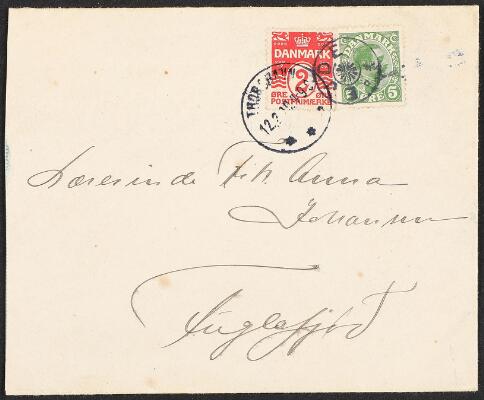 DANMARK
2
ØRE ØRE
POSTFRIMÆRKE
DANMARK
5
THORSHAVN
12.2
Lærerinde Frk. Anna
Johansen
Fuglefjord